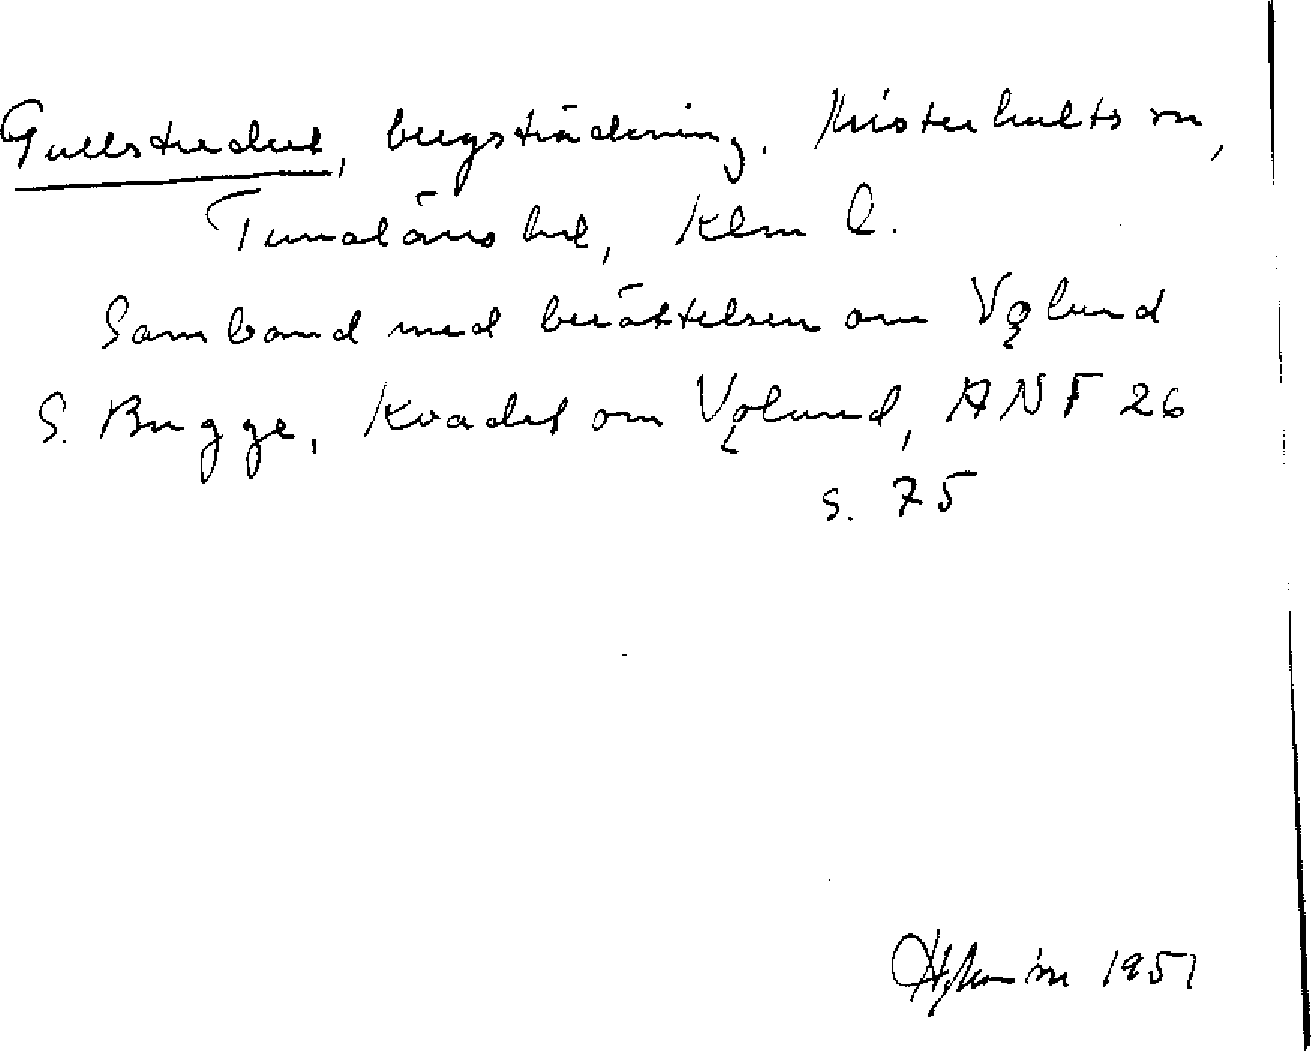 Gullstredet, bergsträckning. Misterhults sn,
Tunaläns hd, Klm l.
Samband med berättelsen om Vǫlund
S. Bugge, Kvadet om Vǫlund, ANF 26
s. 75
1951